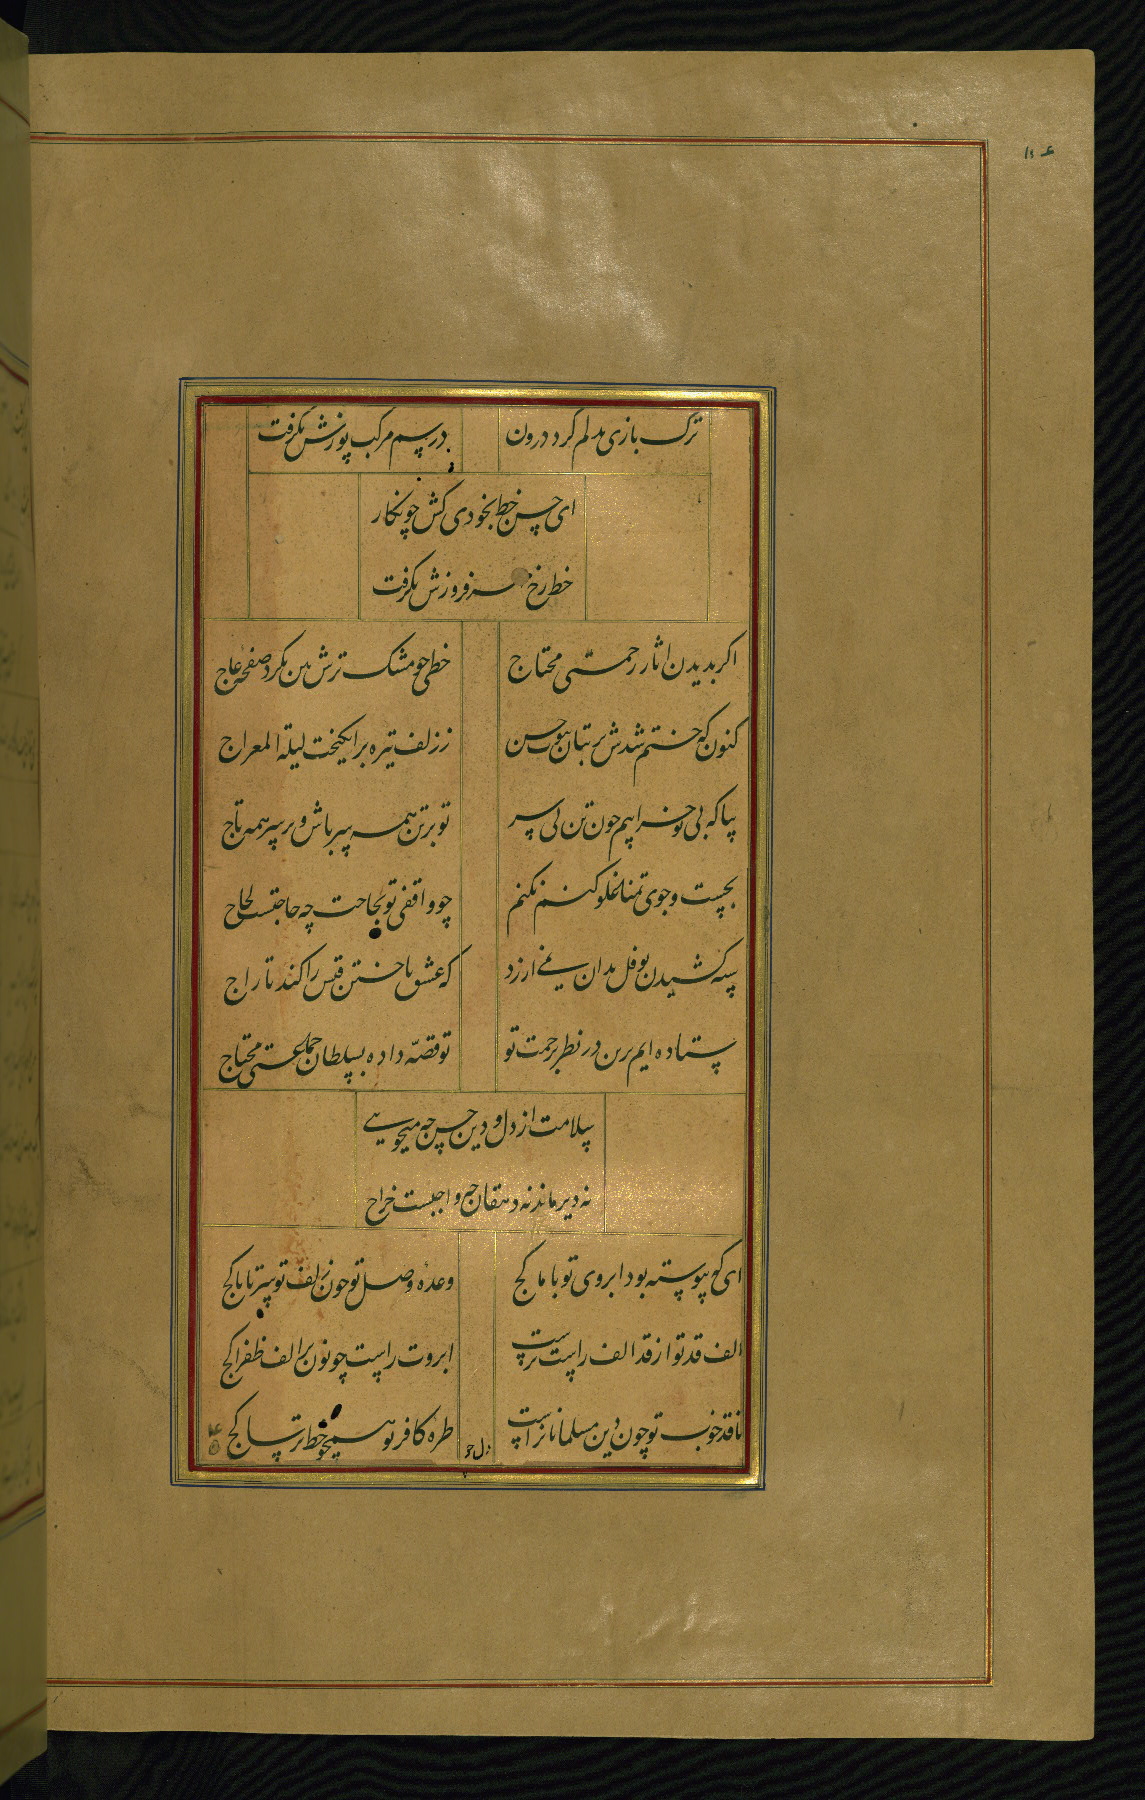 ترک بازی بدلم کرد درون
در پسم مرکب پورش بکرفت
ای حسن خط بخودی کش چو نکار
خط رخ فروزش بکرفت
اکر بدیدن اثار رحمتی محتاج
خطی چو مشک ترش بین بکرد صفحه عاج
کنون که ختم شدش بر بتان حسن
ززلف تیره برانکیخت لیلة المعراج
بیا که بی تو خرابیم چون تن بی سر
تو بر تن همه سر باش و بر سر همه تاج
بجست وجوی تمنا غلو کنم نکنم
چو واقفی تو بحاجت چه حاجتست لحاج
سپه کشیدن نوفل بدان نمی ارزد
که عشق باختن قیس را کند تاراج
ستاده ایم برن در نظر برحمت تو
تو قصه داده بسلطان جماعتی محتاج
سلامت از دل و دین حسن چه میجویی
نه دیر ماند نه دهقان چه واجبست خراج
ای که پیوسته بود ابروی تو با ما کج
وعده وصل تو چون زلف تو سر تا پا کج
الف قد تو از قد الف راست ترست
ابروت راست چو نون بر الف طغرا کج
تا قد خوب تو چون دین مسلمانان راست
طره کافر تو همچو خط ترسا کج